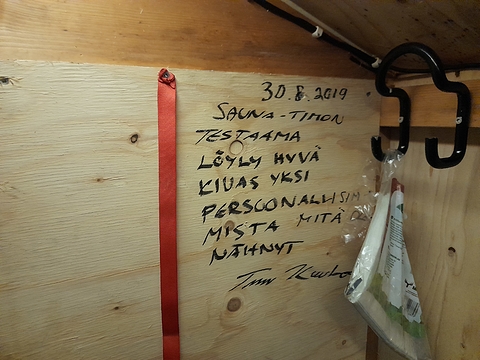 30.8.2019
SAUNA-TIMON
TESTAAMA
LÖYLY HYVÄ
KIUAS YKSI
PERSOONALLISIM
MISTA MITÄ
NÄHNYT